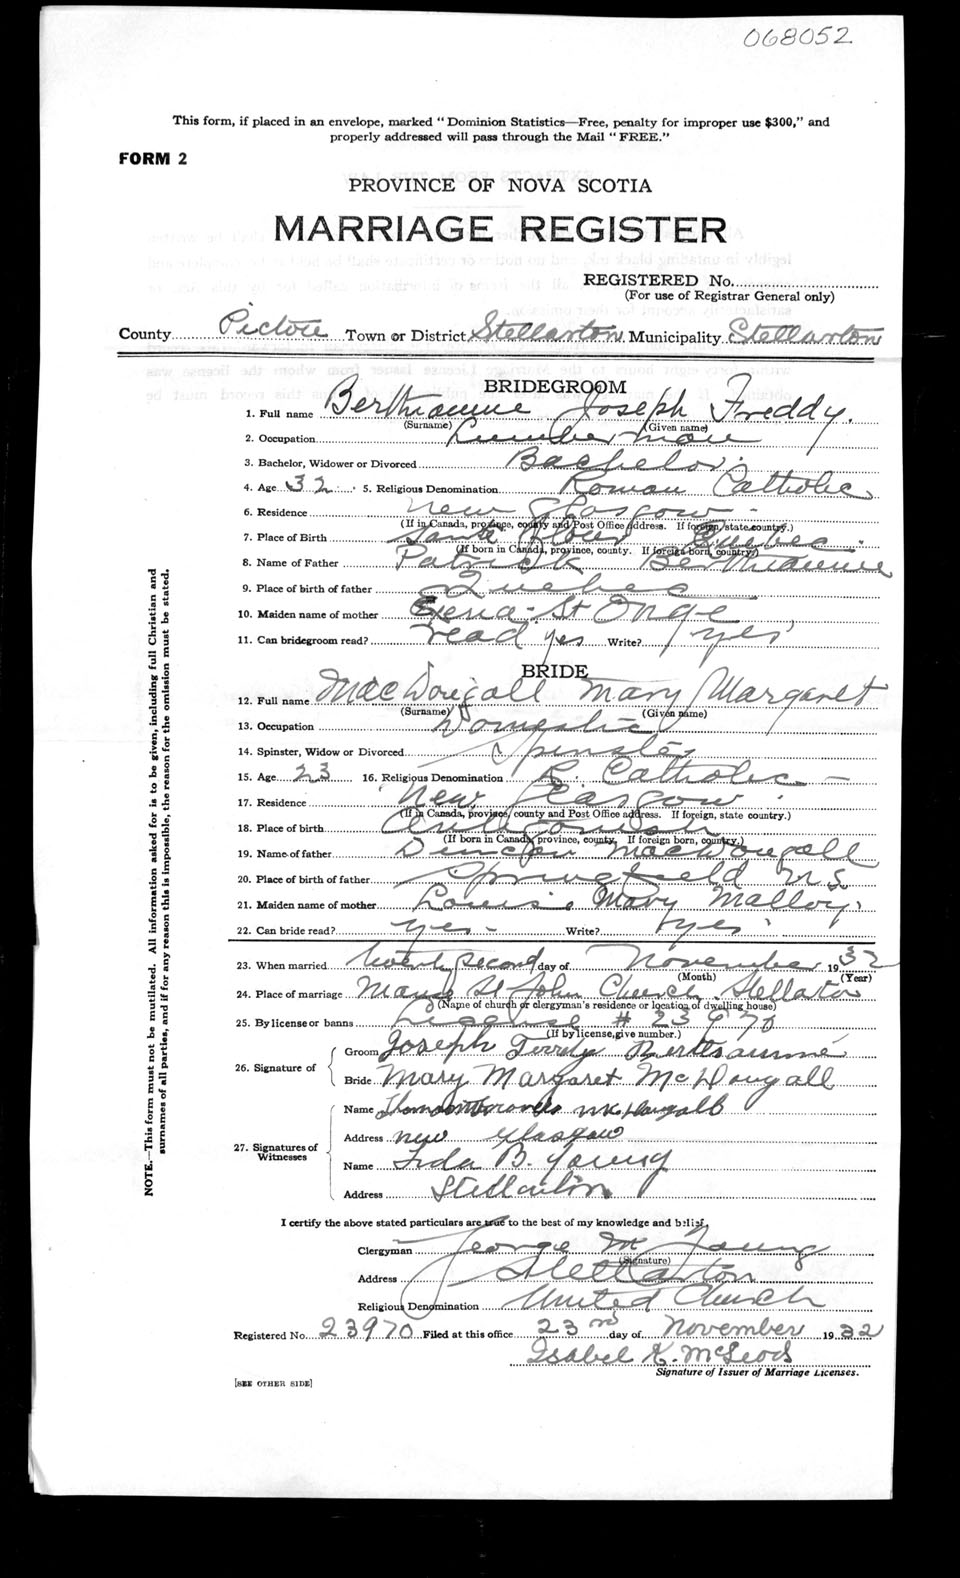 068052
This form, if placed in an envelope, marked "Dominion Statistics—Free, penalty for improper use $300," and
properly addressed will pass through the Mail "FREE."
FORM 2
PROVINCE OF NOVA SCOTIA
MARRIAGE REGISTER
REGISTERED No.
(For use of Registrar General only)
County Pictou Town or District Stellarton Municipality Stellarton
BRIDEGROOM
1. Full name Berthiaume Joseph Freddy.
(Surname) (Given name)
2. Occupation Lumber man
3. Bachelor, Widower or Divorced Bachelor
4. Age 32 5. Religious Denomination Roman Catholic
6. Residence New Glasgow
(If in Canada, province, county and Post Office address. If foreign, state country.)
7. Place of Birth Quebec
(If born in Canada, province, county. If foreign born, country.)
8. Name of Father Patrick Berthiaume
9. Place of birth of father Quebec
10. Maiden name of mother St Onge
11. Can bridegroom read? read yes Write? yes
BRIDE
12. Full name MacDougall Mary Margaret
(Surname) (Given name)
13. Occupation Domestic
14. Spinster, Widow or Divorced Spinster
15. Age 23 16. Religious Denomination R. Catholic
17. Residence New Glasgow
(If in Canada, province, county and Post Office address. If foreign, state country.)
18. Place of birth Antigonish
(If born in Canada, province, county. If foreign born, country.)
19. Name of father Duncan MacDougall
20. Place of birth of father Springfield N.S.
21. Maiden name of mother Mary Malloy
22. Can bride read? yes Write? yes
23. When married twenty second day of November 1932
(Month) (Year)
24. Place of marriage Manse St John Church Stellarton
(Name of church or clergyman's residence or location of dwelling house)
25. By license or banns License # 23970
(If by license, give number.)
26. Signature of
Groom Joseph Berthiaume
Bride Mary Margaret McDougall
27. Signatures of Witnesses
Name McDougall
Address New Glasgow
Name B. Young
Address Stellarton
I certify the above stated particulars are true to the best of my knowledge and belief.
Clergyman George M Young
(Signature)
Address Stellarton
Religious Denomination United Church
Registered No. 23970 Filed at this office 23rd day of November 1932
Isabel K. McLeod
Signature of Issuer of Marriage Licenses.
[SEE OTHER SIDE]
NOTE.—This form must not be mutilated. All information asked for is to be given, including full Christian and
surnames of all parties, and if for any reason this is impossible, the reason for the omission must be stated.